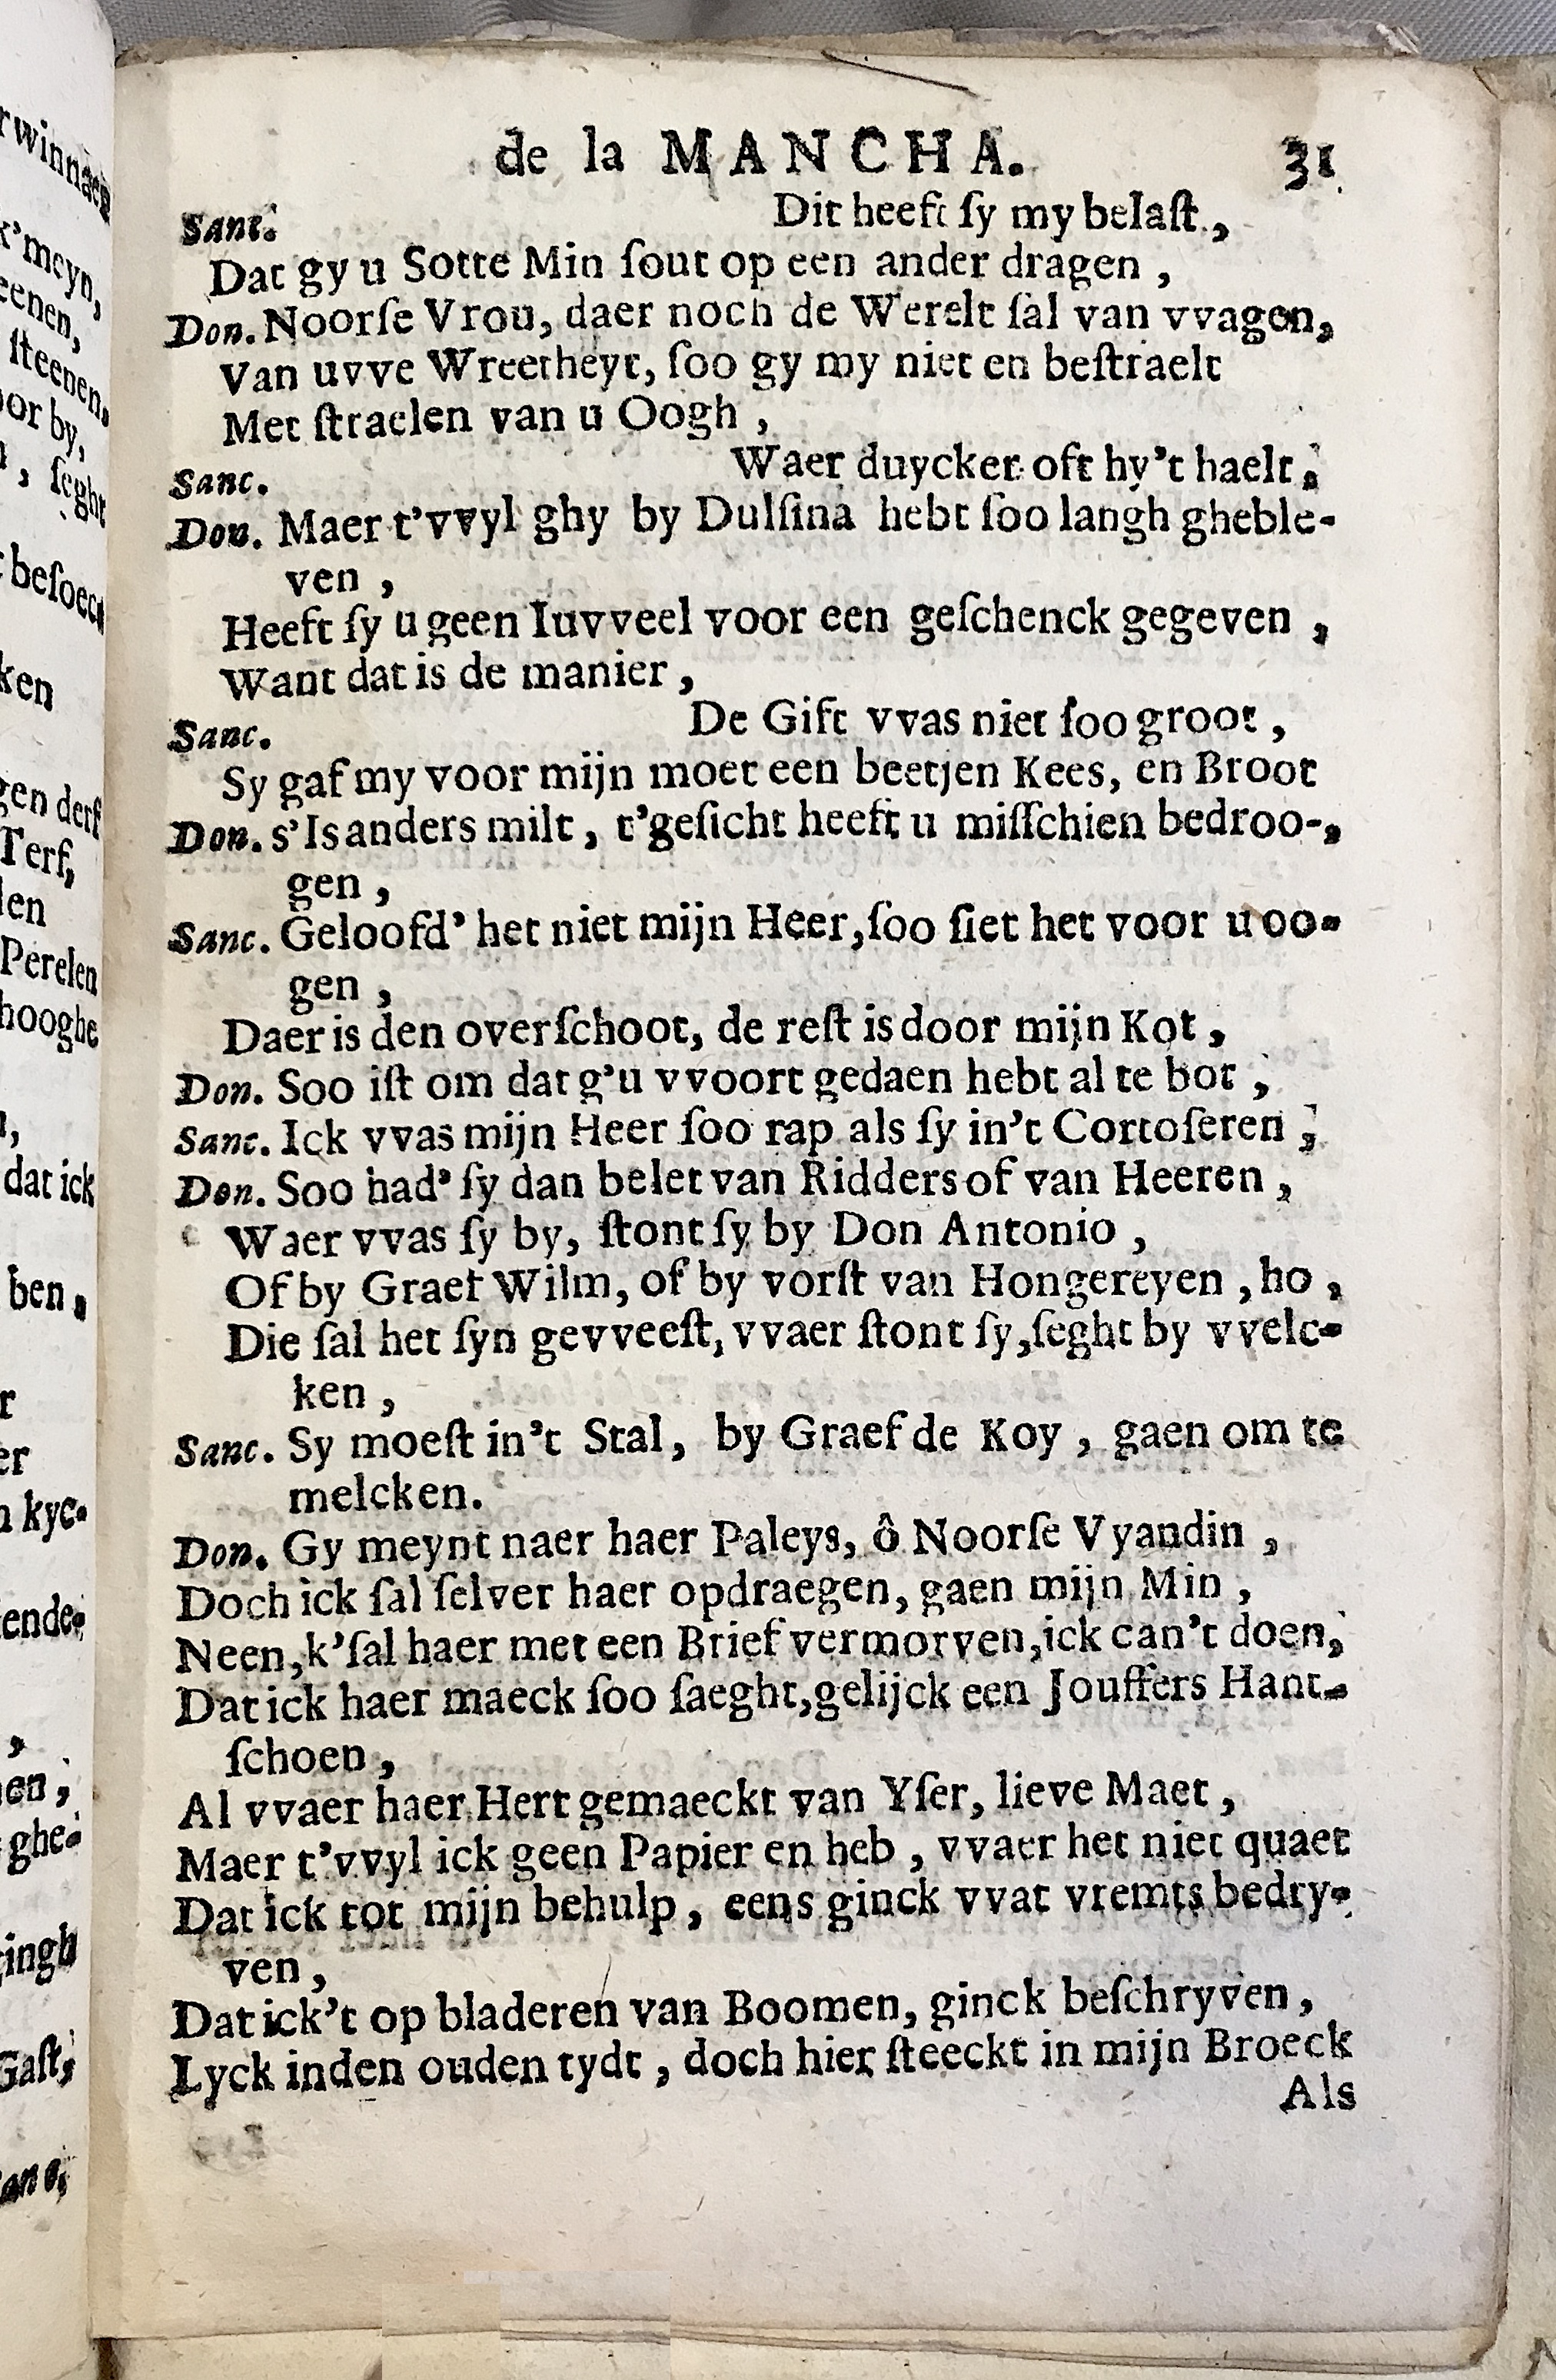 de la MANCHA. 31
Sanc. Dit heeft ſy my belaſt,
Dat gy u Sotte Min ſout op een ander dragen,
Don. Noorſe Vrou, daer noch de Werelt ſal van vvagen,
Van uvve Wreetheyt, ſoo gy my niet en beſtraelt
Met ſtraelen van u Oogh,
Sanc. Waer duycker oft hy't haelt,
Don. Maer t'vvyl ghy by Dulſina hebt ſoo langh gheble-
ven,
Heeft ſy u geen Iuvveel voor een geſchenck gegeven,
Want dat is de manier,
Sanc. De Gift vvas niet ſoo groot,
Sy gaf my voor mijn moet een beetjen Kees, en Broot
Don. s'Is anders milt, t'geſicht heeft u miſſchien bedroo-,
gen,
Sanc. Geloofd' het niet mijn Heer, ſoo ſiet het voor u oo-
gen,
Daer is den overſchoot, de reſt is door mijn Kot,
Don. Soo iſt om dat g'u vvoort gedaen hebt al te bot,
Sanc. Ick vvas mijn Heer ſoo rap als ſy in't Cortoſeren,
Don. Soo had' ſy dan belet van Ridders of van Heeren,
Waer vvas ſy by, ſtont ſy by Don Antonio,
Of by Graef Wilm, of by vorſt van Hongereyen, ho,
Die ſal het ſyn gevveeſt, vvaer ſtont ſy, ſeght by vvelc-
ken,
Sanc. Sy moeſt in't Stal, by Graef de Koy, gaen om te
melcken.
Don. Gy meynt naer haer Paleys, ô Noorſe Vyandin,
Doch ick ſal ſelver haer opdraegen, gaen mijn Min,
Neen, k'ſal haer met een Brief vermorven, ick can't doen,
Dat ick haer maeck ſoo ſaeght, gelijck een Jouffers Hant-
ſchoen,
Al vvaer haer Hert gemaeckt van Yſer, lieve Maet,
Maer t'vvyl ick geen Papier en heb, vvaer het niet quaet
Dat ick tot mijn behulp, eens ginck vvat vremts bedry-
ven,
Dat ick't op bladeren van Boomen, ginck beſchryven,
Lyck inden ouden tydt, doch hier ſteeckt in mijn Broeck
Als